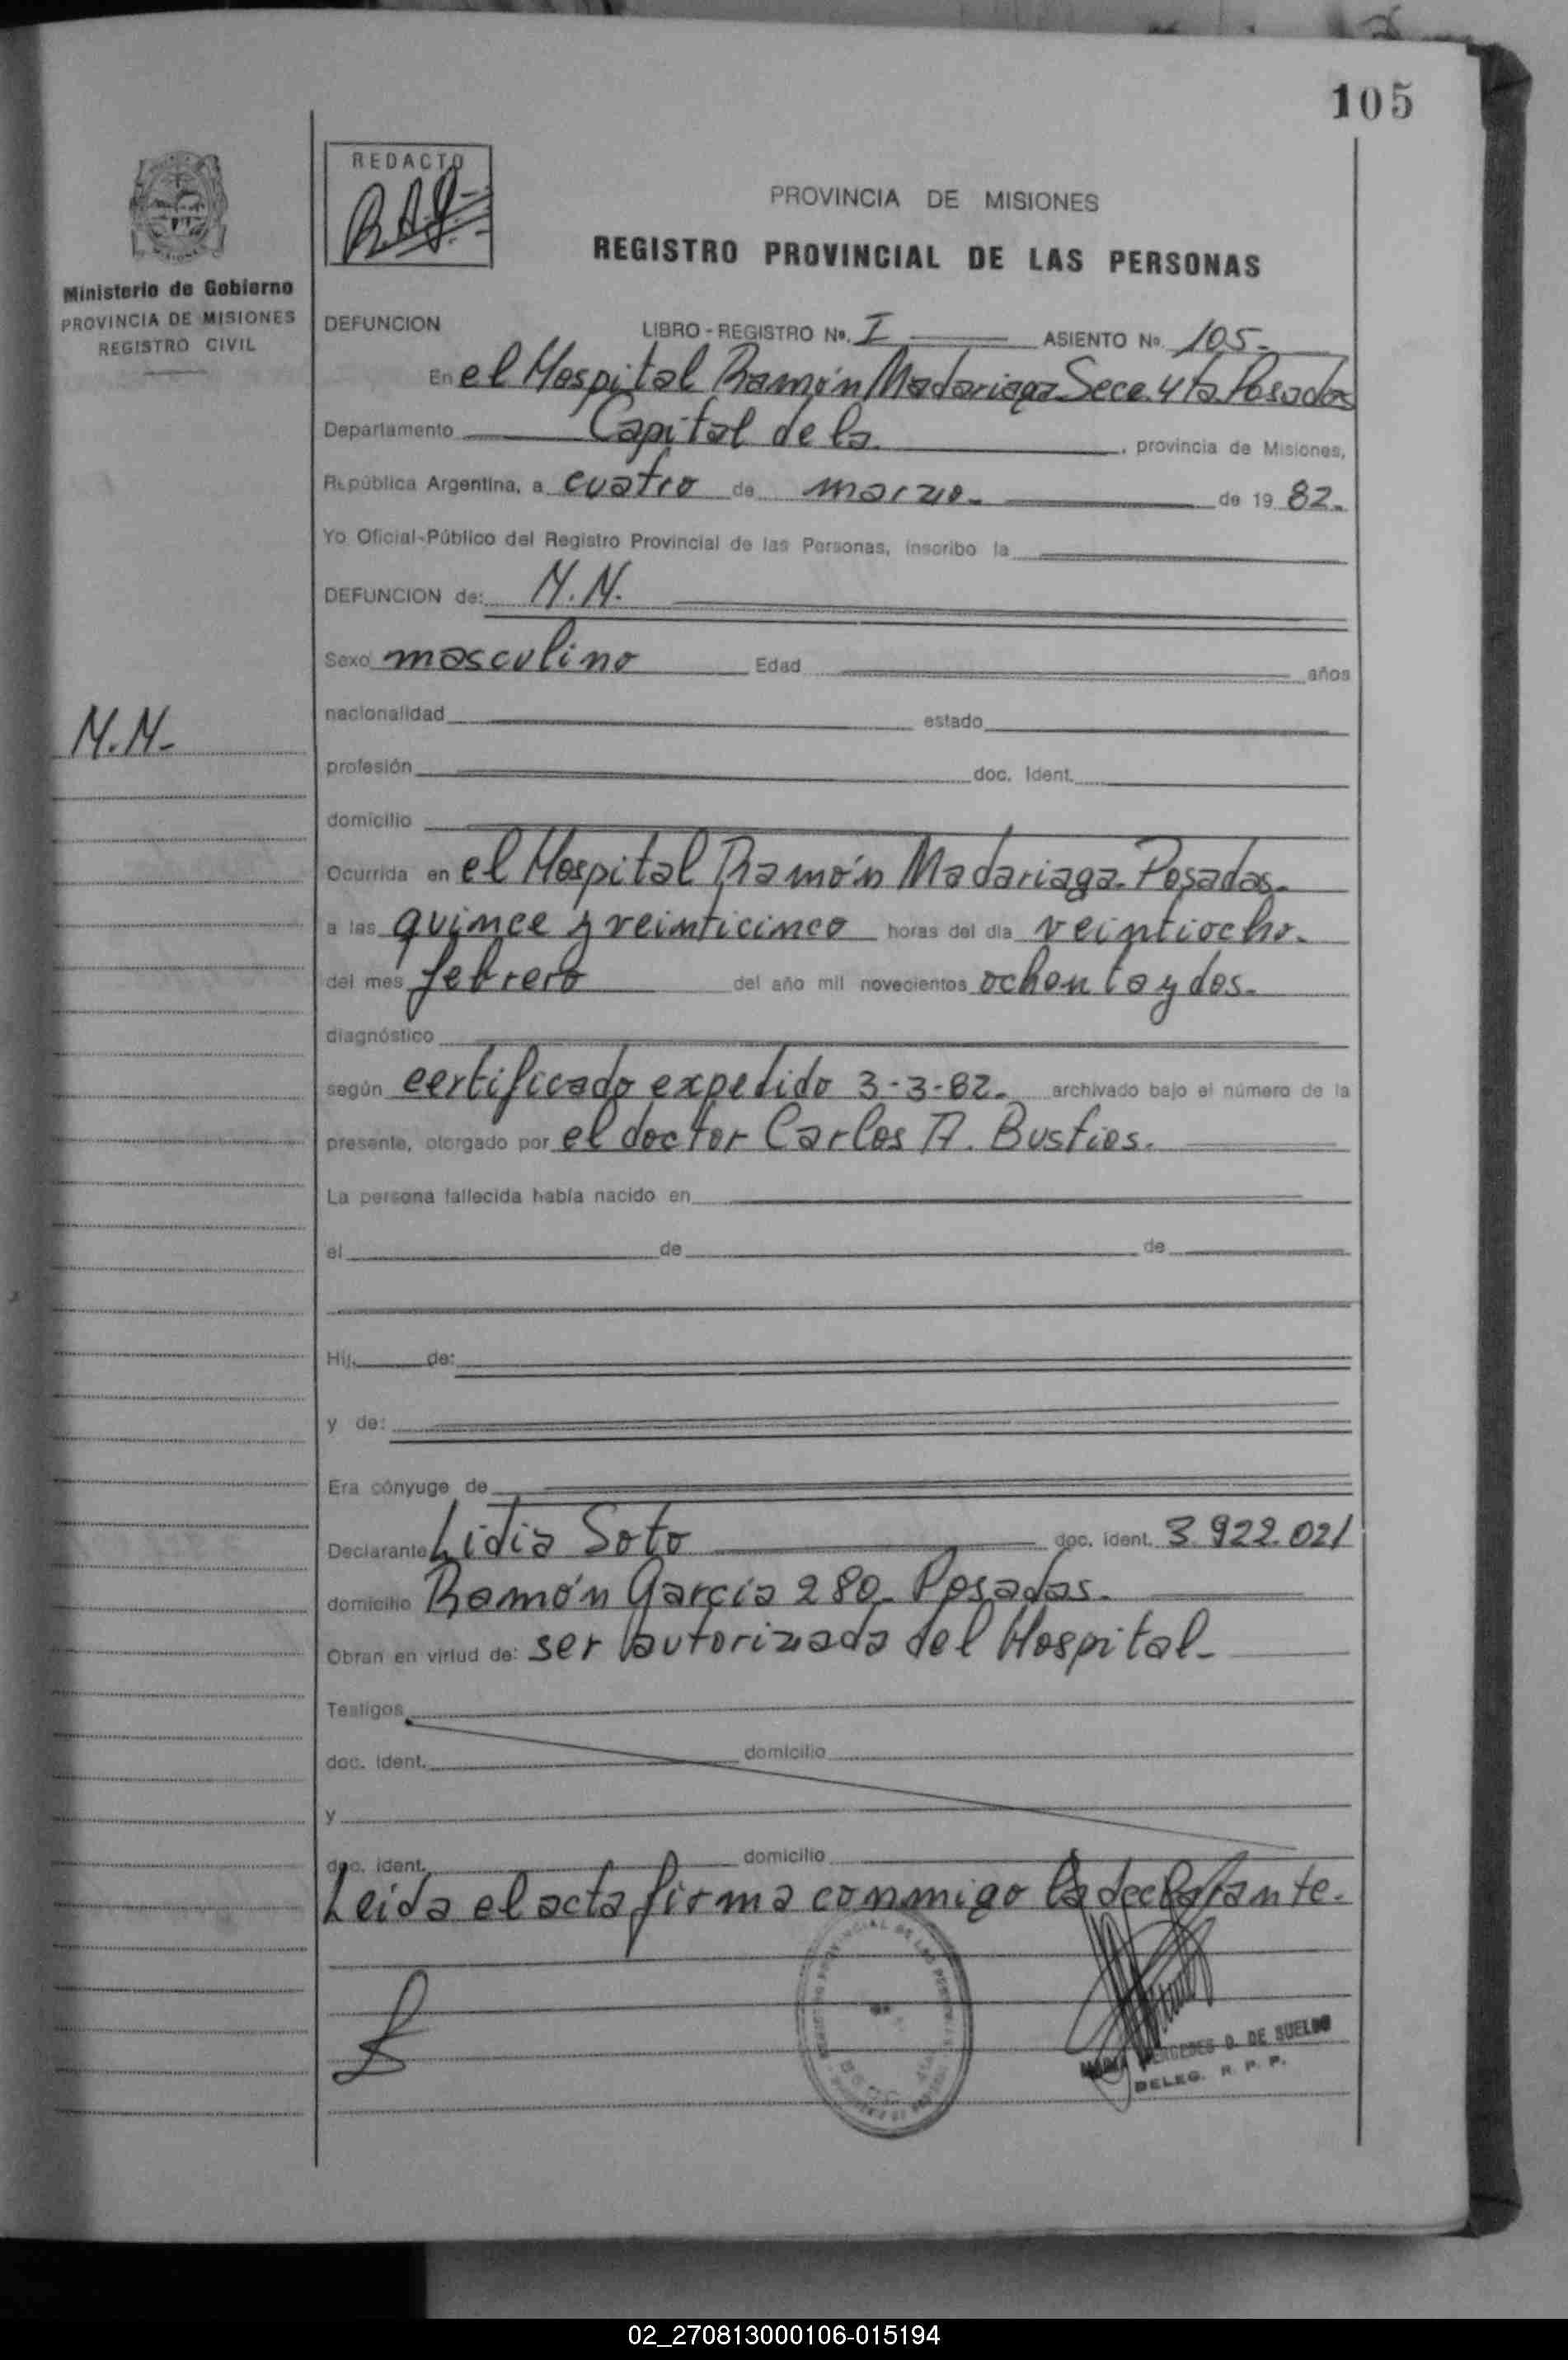 105
REDACTO
PROVINCIA DE MISIONES
REGISTRO PROVINCIAL DE LAS PERSONAS
Ministerio de Gobierno
PROVINCIA DE MISIONES
REGISTRO CIVIL
DEFUNCION LIBRO - REGISTRO No. I ASIENTO No. 105.
En el Hospital Ramón Madariaga Secc. 4ta. Posadas
Departamento Capital de la , provincia de Misiones,
República Argentina, a cuatro de marzo. de 19 82.
Yo Oficial-Público del Registro Provincial de las Personas, inscribo la
DEFUNCION de: N.N.
Sexo masculino Edad años
nacionalidad estado
N.N.-
profesión doc. Ident.
domicilio
Ocurrida en el Hospital Ramón Madariaga. Posadas.
a las quince y veinticinco horas del día veintiocho.
del mes febrero del año mil novecientos ochenta y dos.
diagnóstico
según certificado expedido 3-3-82. archivado bajo el número de la
presente, otorgado por el doctor Carlos A. Bustios.
La persona fallecida había nacido en
el de de
Hij de:
y de:
Era cónyuge de
Declarante Lidia Soto doc. ident. 3.922.021
domicilio Ramón García 280. Posadas.
Obran en virtud de: ser autorizada del Hospital.
Testigos
doc. ident. domicilio
y
doc. ident. domicilio
Leida el acta firma conmigo la declarante.
MARIA MERCEDES D. DE SUELDO
DELEG. R. P. P.
02_270813000106-015194